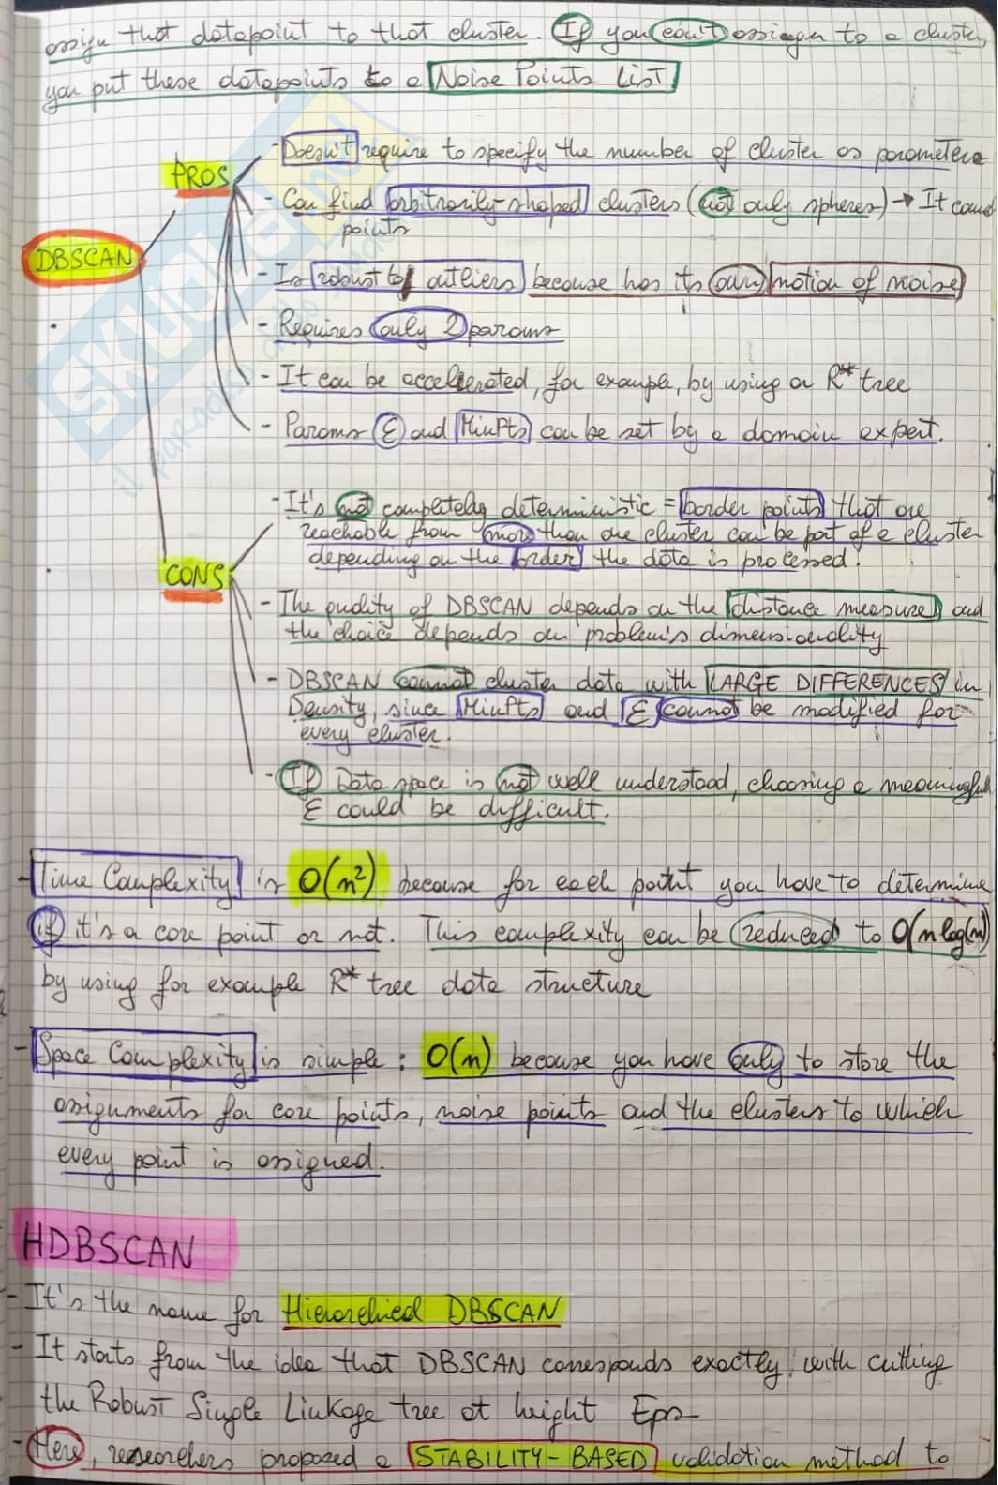 assign that datapoint to that cluster. If you can't assign to a cluster,
you put these datapoints to a Noise Points List
PROS
- Doesn't require to specify the number of cluster as parameters
- Can find arbitrarily-shaped clusters (not only spheres) → It count
points
DBSCAN
- Is robust to outliers because has its own notion of noise
- Requires only 2 params
- It can be accelerated, for example, by using a R* tree
- Params ε and MinPts can be set by a domain expert.
- It's not completely deterministic = border points that are
reachable from more than one cluster can be part of a cluster
depending on the order the data is processed.
CONS
- The quality of DBSCAN depends on the distance measure and
the choice depends on problem's dimensionality
- DBSCAN cannot cluster data with LARGE DIFFERENCES in
Density, since MinPts and ε cannot be modified for
every cluster.
- If Data space is not well understood, choosing a meaningful
ε could be difficult.
- Time Complexity is O(n²) because for each point you have to determine
if it's a core point or not. This complexity can be reduced to O(n log(n))
by using for example R* tree data structure
- Space Complexity is simple: O(n) because you have only to store the
assignments for core points, noise points and the clusters to which
every point is assigned.
HDBSCAN
- It's the name for Hierarchical DBSCAN
- It starts from the idea that DBSCAN corresponds exactly with cutting
the Robust Single Linkage tree at height Eps
- Here, researchers proposed a STABILITY-BASED validation method to